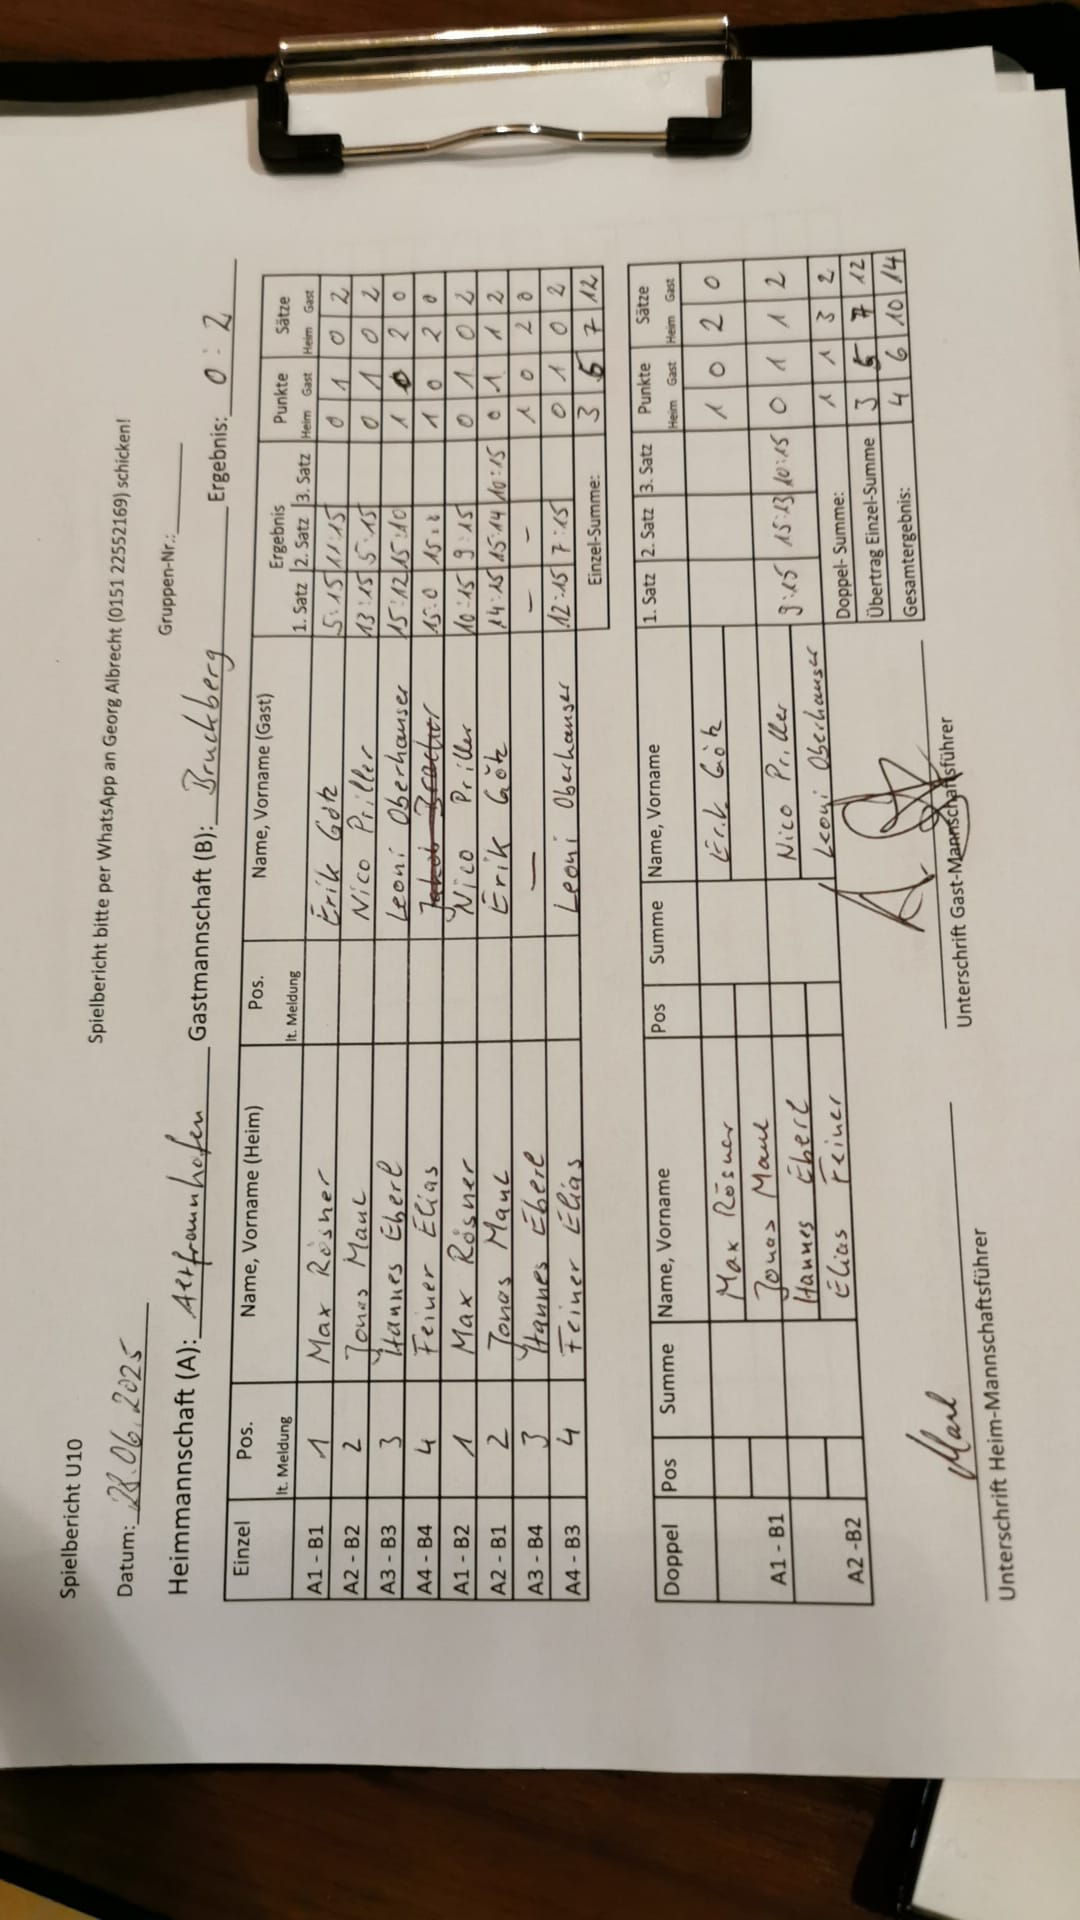 Spielbericht U10
Spielbericht bitte per WhatsApp an Georg Albrecht (0151 22552169) schicken!
Datum: 28.06.2025
Gruppen-Nr.:
Heimmannschaft (A): Altfraunhofen Gastmannschaft (B): Bruckberg Ergebnis: 0 : 2
Einzel Pos. Name, Vorname (Heim) Pos. Name, Vorname (Gast) Ergebnis Punkte Sätze
lt. Meldung lt. Meldung 1. Satz 2. Satz 3. Satz Heim Gast Heim Gast
A1 - B1 1 Max Rösner Erik Götz 5:15 11:15 0 1 0 2
A2 - B2 2 Jonas Maul Nico Priller 13:15 5:15 0 1 0 2
A3 - B3 3 Hannes Eberl Leoni Oberhauser 15:12 15:10 1 0 2 0
A4 - B4 4 Feiner Elias 15:0 15:0 1 0 2 0
A1 - B2 1 Max Rösner Nico Priller 10:15 9:15 0 1 0 2
A2 - B1 2 Jonas Maul Erik Götz 14:15 15:14 10:15 0 1 1 2
A3 - B4 3 Hannes Eberl — – – 1 0 2 0
A4 - B3 4 Feiner Elias Leoni Oberhauser 12:15 7:15 0 1 0 2
Einzel-Summe: 3 5 7 12
Doppel Pos Summe Name, Vorname Pos Summe Name, Vorname 1. Satz 2. Satz 3. Satz Punkte Sätze
Heim Gast Heim Gast
Max Rösner Erik Götz 1 0 2 0
A1 - B1 Jonas Maul
Hannes Eberl Nico Priller 9:15 15:13 10:15 0 1 1 2
A2 - B2 Elias Feiner Leoni Oberhauser
Doppel- Summe: 1 1 3 2
Übertrag Einzel-Summe 3 5 7 12
Gesamtergebnis: 4 6 10 14
Maul
Unterschrift Heim-Mannschaftsführer Unterschrift Gast-Mannschaftsführer